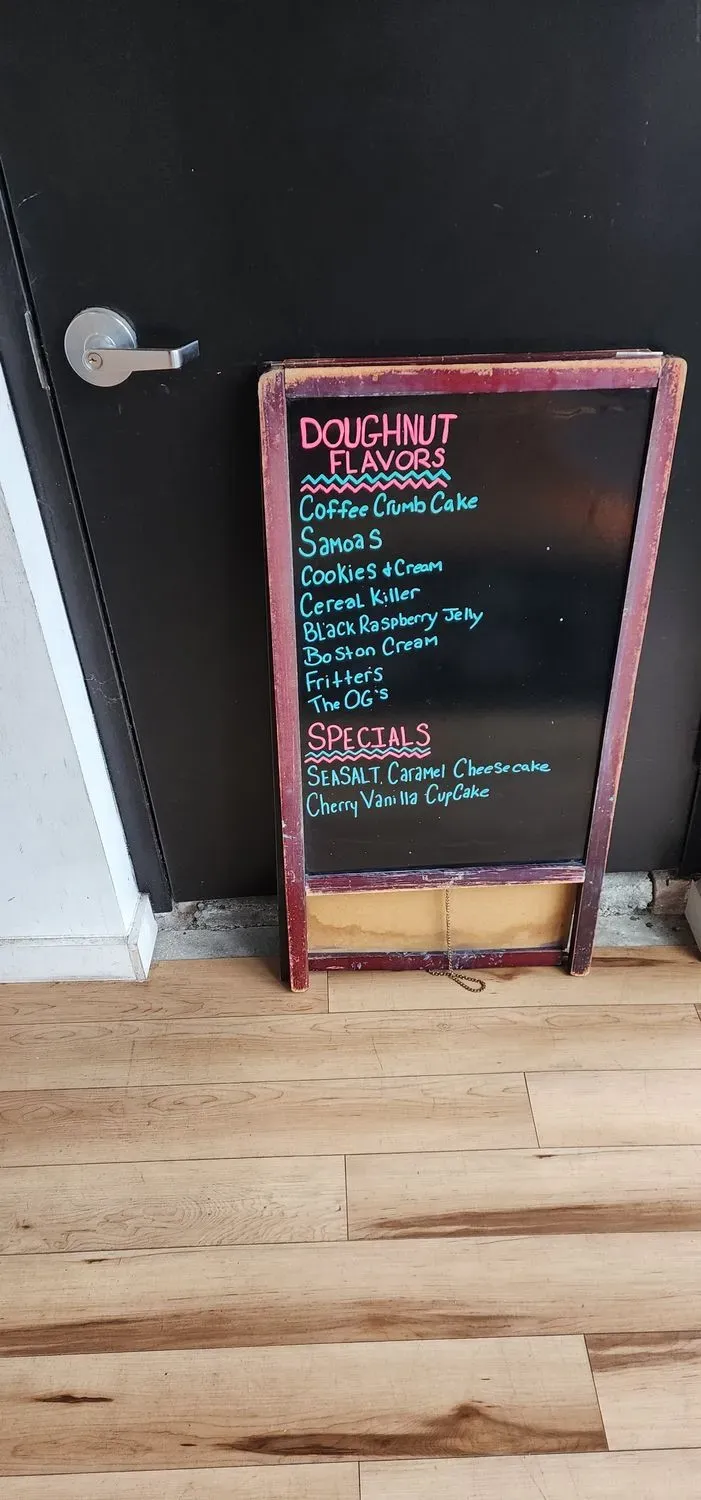 DOUGHNUT
FLAVORS
Coffee Crumb Cake
Samoas
Cookies & Cream
Cereal Killer
Black Raspberry Jelly
Boston Cream
Fritters
The OG's
SPECIALS
SEASALT Caramel Cheesecake
Cherry Vanilla CupCake